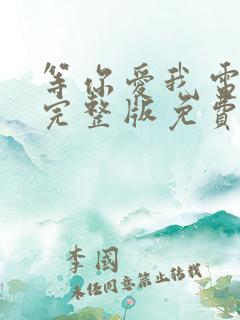 等你爱我電
完整版免費
李國
未经同意禁止转载